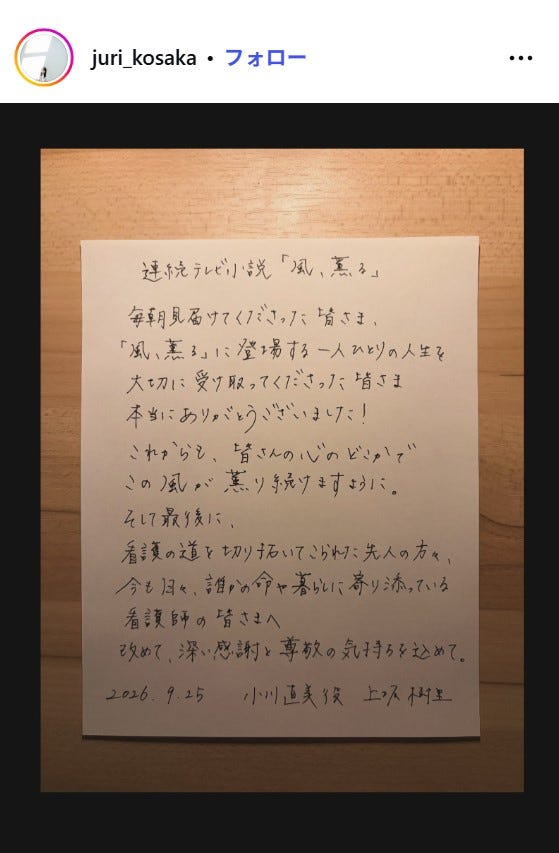 juri_kosaka • フォロー
連続テレビ小説「風、薫る」
毎朝見届けてくださった皆さま、
「風、薫る」に登場する一人ひとりの人生を
大切に受け取ってくださった皆さま
本当にありがとうございました!
これからも、皆さんの心のどこかで
この風が薫り続けますように。
そして最後に、
看護の道を切り拓いてこられた先人の方々、
今も日々、誰かの命や暮らしに寄り添っている
看護師の皆さまへ
改めて、深い感謝と尊敬の気持ちを込めて。
2026.9.25 小川直美役 上坂樹里